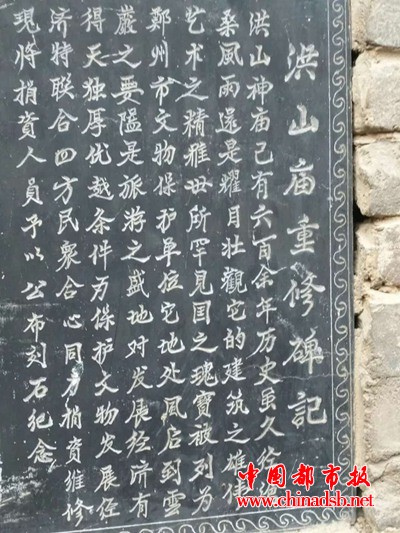 洪山庙重修碑記
洪山神庙已有六百余年历史虽久经
桑風雨還是耀目壮觀它的建筑之雄伟
艺术之精雅世所罕見国之瑰寶被列为
鄭州市文物保护单位它地处風后到雲
巖之要隘是旅游之盛地对发展经济有
得天独厚优越条件为保护文物发展经
济特联合四方民眾合心同力捐資維修
現将捐資人員予以公布刻石纪念
中国都市报
www.chinadsb.net